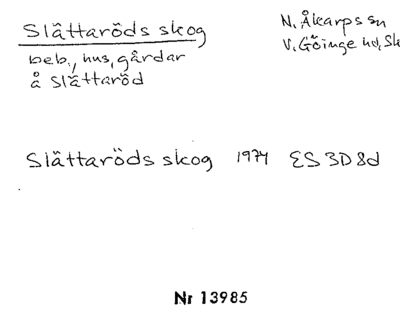 Slättaröds skog
N. Åkarps sn
V. Göinge hd, Sk
beb., hus, gårdar
å Slättaröd
Slättaröds skog 1974 ES 3D8d
Nr 13985